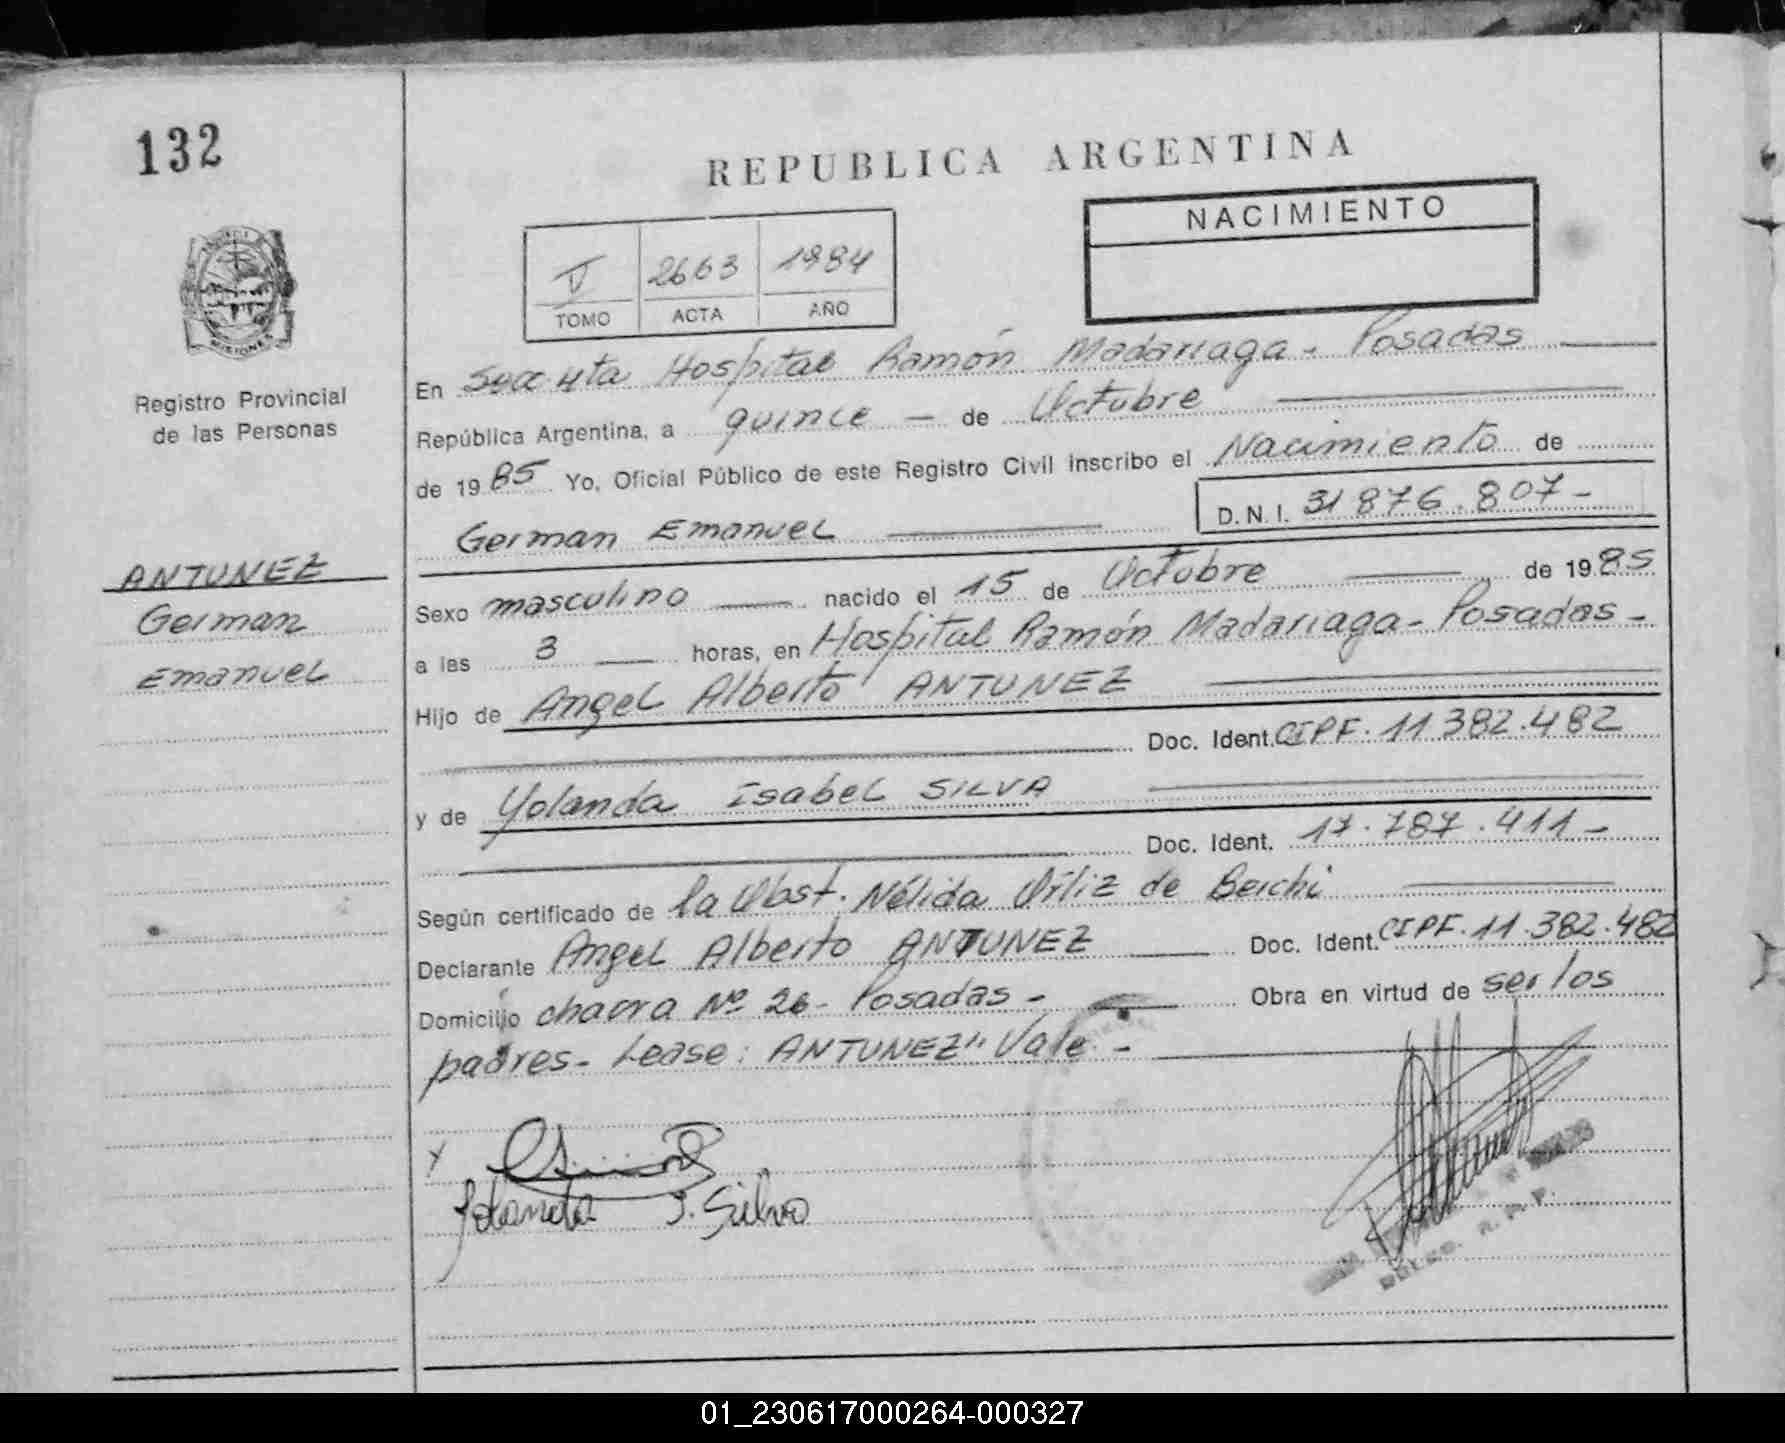 132
REPUBLICA ARGENTINA
NACIMIENTO
V 2663 1984
TOMO ACTA AÑO
MISIONES
Registro Provincial
de las Personas
En Hospital Ramón Madariaga - Posadas
República Argentina, a quince - de Octubre
de 1985 Yo, Oficial Público de este Registro Civil inscribo el Nacimiento de
German Emanuel D.N.I. 31 876.807-
ANTUNEZ
German
Emanuel
Sexo masculino nacido el 15 de Octubre de 1985
a las 3 horas, en Hospital Ramón Madariaga - Posadas -
Hijo de Angel Alberto ANTUNEZ
Doc. Ident. CIPF. 11 382.482
y de Yolanda Isabel SILVA
Doc. Ident. 17.787.411-
Según certificado de la Obst. Nélida Ortiz de Berchi
Declarante Angel Alberto ANTUNEZ Doc. Ident. CIPF. 11.382.482
Domicilio chacra Nº 26 - Posadas - Obra en virtud de ser los
padres - Lease: ANTUNEZ" Vale -
Yolanda I. Silva
01_230617000264-000327